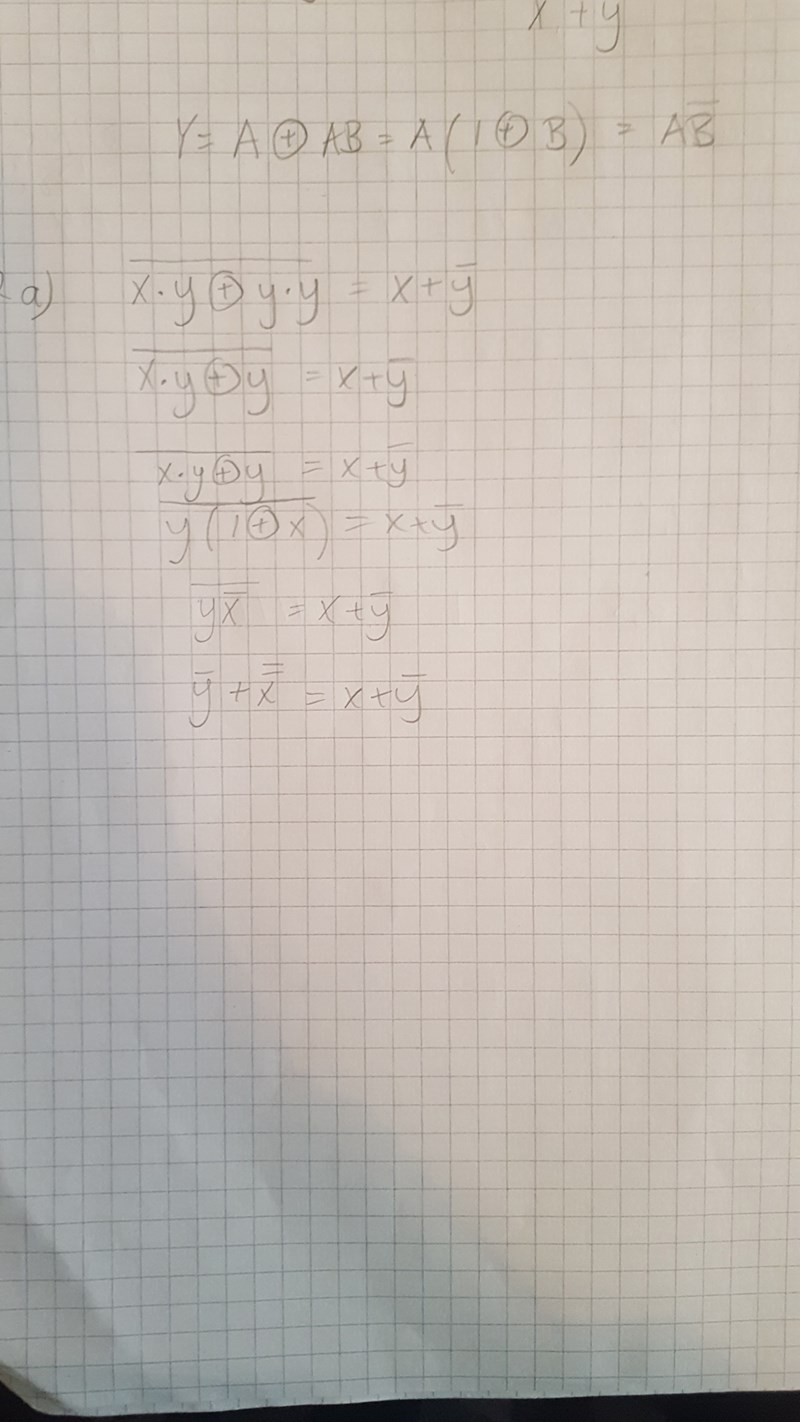 x + y
Y = A ⊕ AB = A(1 ⊕ B) = AB̅
a) \overline{x·y ⊕ y·y} = x + y̅
\overline{x·y ⊕ y} = x + y̅
\overline{x·y ⊕ y} = x + y̅
\overline{y(1 ⊕ x)} = x + y̅
\overline{y x̅} = x + y̅
y̅ + x̿ = x + y̅